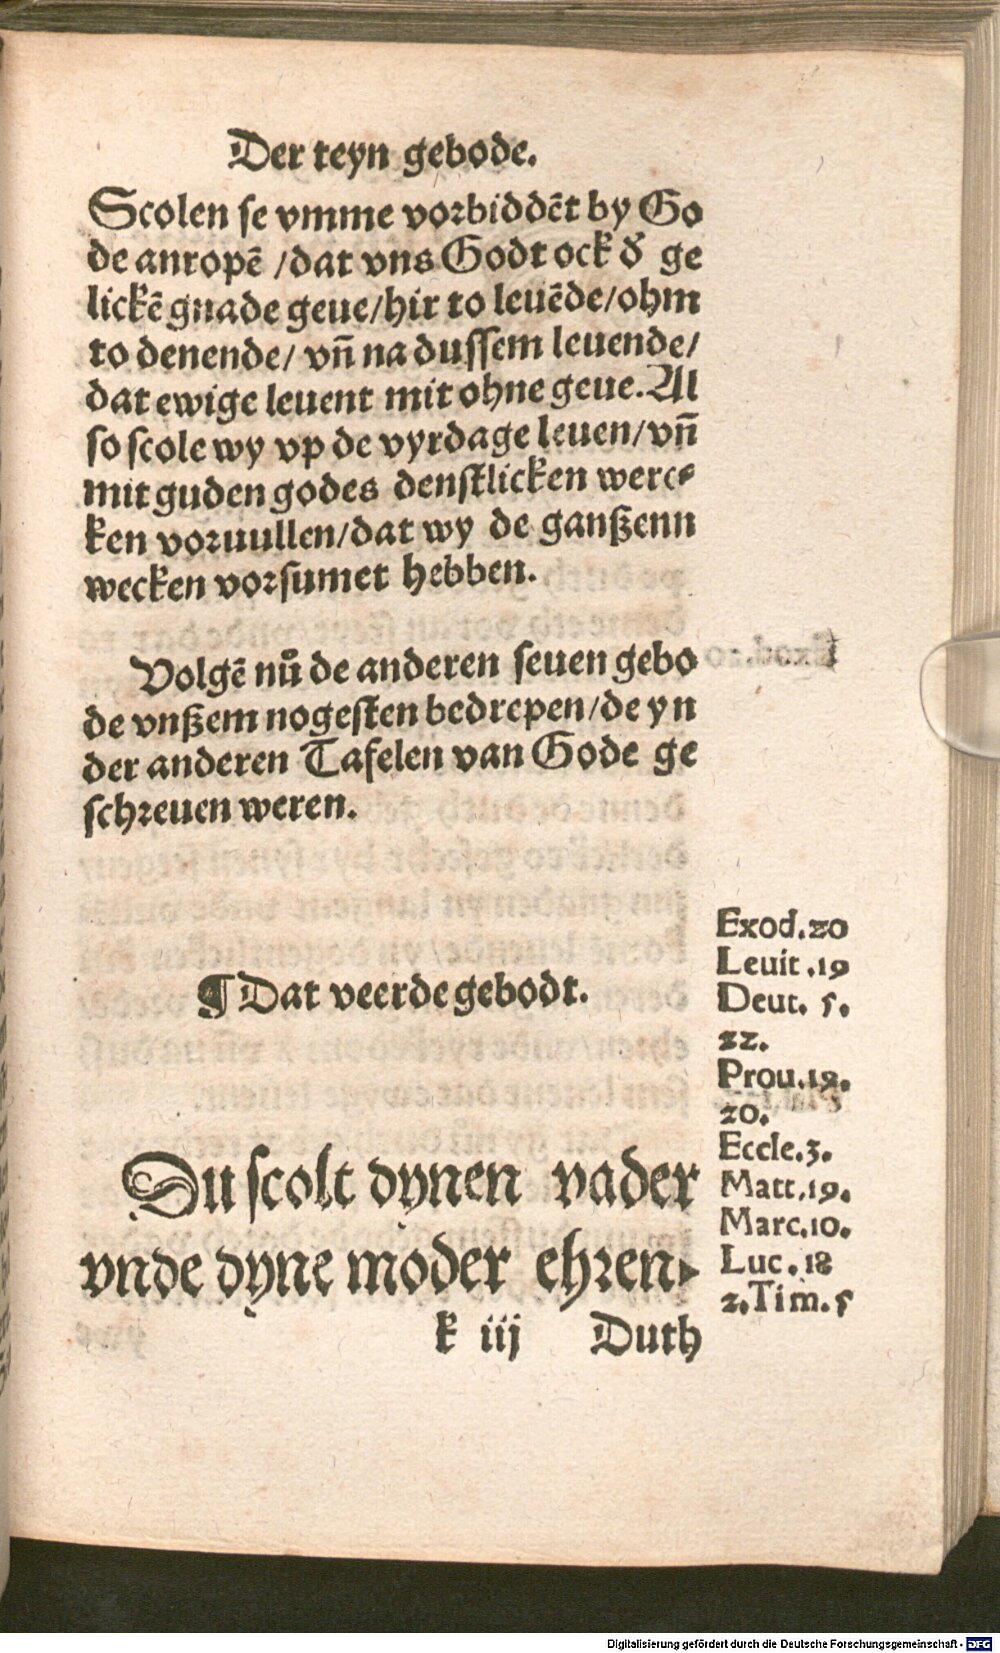 Der teyn gebode.
Scolen se vmme vorbiddēt by Go
de anropē /dat vns Godt ock d̕ ge
lickē gnade geue/hir to leuēde/ohm
to denende/ vn̄ na dussem leuende/
dat ewige leuent mit ohne geue. Al
so scole wy vp de vyrdage leuen/vn̄
mit guden godes denstlicken werc⸗
ken voruullen/dat wy de ganßenn
wecken vorsumet hebben.
Volgē nů de anderen seuen gebo
de vnßem nogesten bedrepen/de yn
der anderen Tafelen van Gode ge
schreuen weren.
¶ Dat veerde gebodt.
Du scolt dynen vader
vnde dyne moder ehren.
k iij Duth
Exod.20
Leuit .19
Deut. 5.
22.
Prou.19.
20.
Eccle.3.
Matt.19.
Marc.10.
Luc.18
2.Tim.5
Digitalisierung gefördert durch die Deutsche Forschungsgemeinschaft - DFG